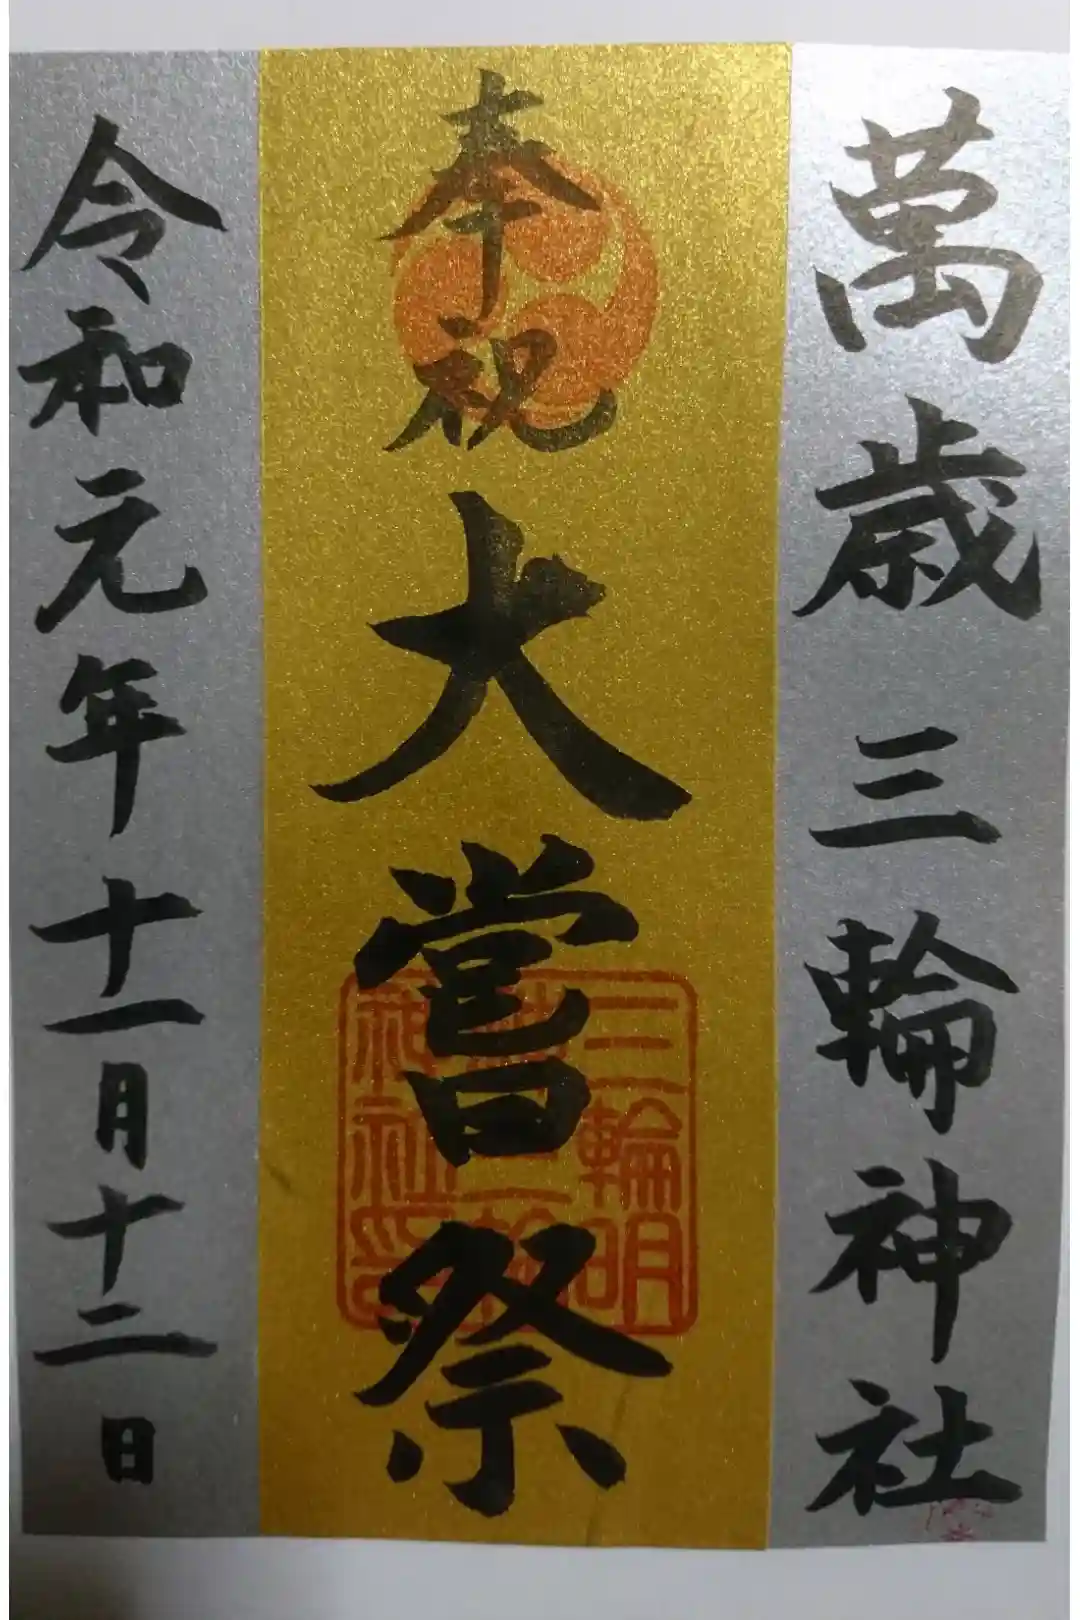 萬歳 三輪神社
奉祝 大嘗祭
令和元年十一月十二日